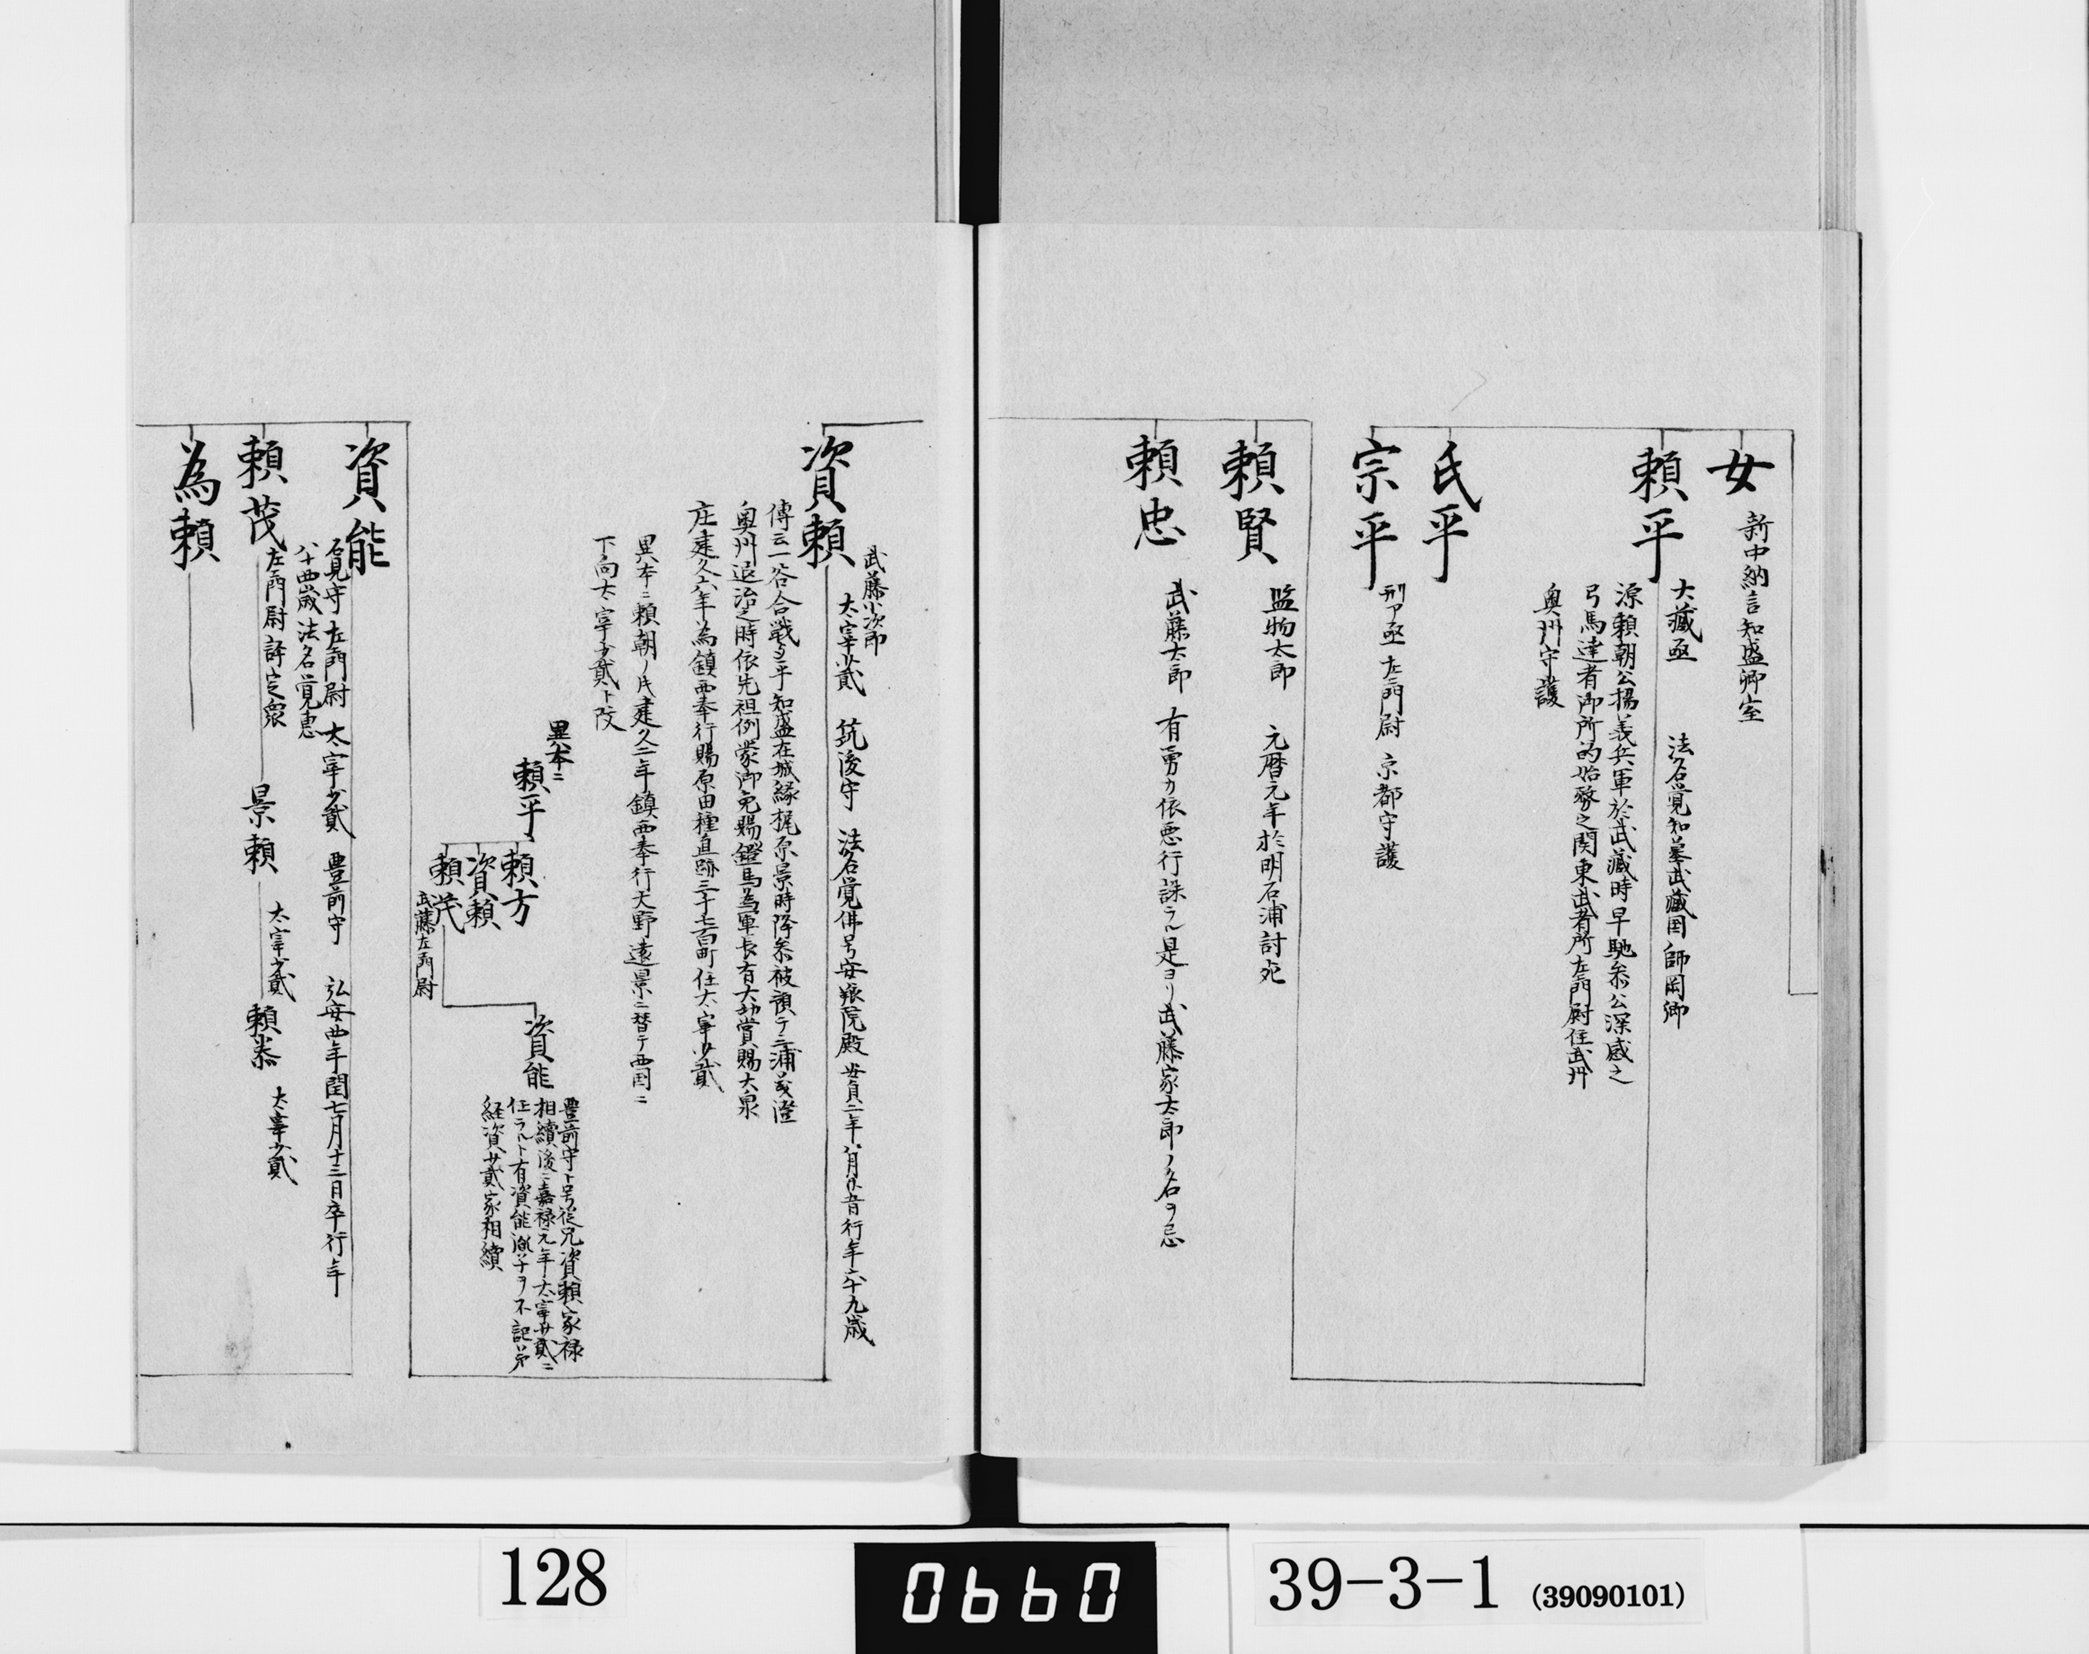 女
新中納言知盛卿室
頼平
大藏丞 法名覚知墓武藏国師岡郷
源頼朝公揚義兵軍於武藏時早馳参公深感之
弓馬達者御所的始發之関東武者所左衛門尉住武州
奥州守護
氏平
宗平
刑ア丞 左衛門尉 京都守護
頼賢
監物太郎 元暦元年於明石浦討死
頼忠
武藤太郎 有勇力依悪行誅ラル是ヨリ武藤家太郎ノ名ヲ忌
資頼
武藤小次郎
太宰少貳 筑後守 法名覚佛号安養院殿 安貞二年八月廿五日行年六十九歳
傳云一谷合戦ニ平知盛在城縁梶原景時降参被預テ三浦義澄
奥州退治之時依先祖例蒙御免賜鎧馬為軍長有大功賞賜大泉
庄建久六年為鎮西奉行賜原田種直跡三千七百町任太宰少貳
異本ニ頼朝ノ氏建久二年鎮西奉行天野遠景ニ替テ西国ニ
下向太宰少貳ト改
異本ニ
頼平
頼方
資頼
頼茂
武藤左衛門尉
資能
豊前守ト号従兄資頼家禄
相續後ニ嘉禄元年太宰少貳ニ
任ラルト有資能 ヲ不記弟
経資少貳家相續
資能
石見守 左衛門尉 太宰少貳 豊前守 弘安四年閏七月十三日卒行年
八十四歳 法名覚恵
頼茂
左衛門尉 評定衆
景頼
太宰少貳
頼泰
太宰少貳
為頼
128
0660
39-3-1 (39090101)